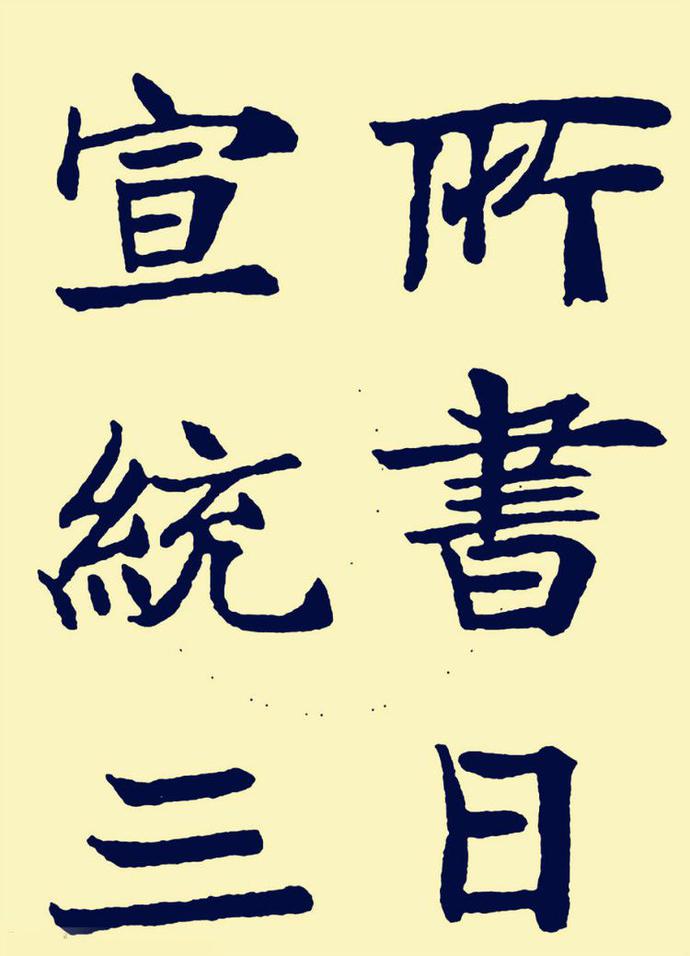 所書日
宣統三